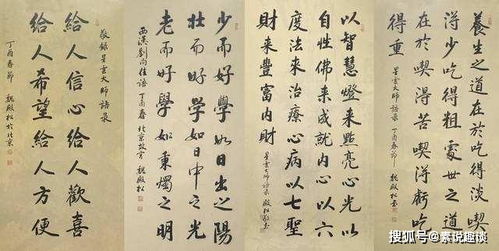 養生之道在於吃得淡喫
得少吃得粗處世之道
在於喫得苦喫得虧吃
得重
星雲大師語录 丁酉春節 魏殿松書
以智慧燈來點亮心光以
自性佛來成就内心以六
度法來治療心病以七聖
財來豐富内財
星雲大師語录 殿松敬書
少而好學如日出之陽
壯而好學如日中之光
老而好學如秉燭之明
西漢劉向佳語 丁酉春 北京故宫 魏殿松
敬録星雲大師語录
給人信心給人歡喜
給人希望給人方便
丁酉春節 魏殿松於北京
搜狐号@素说趣谈